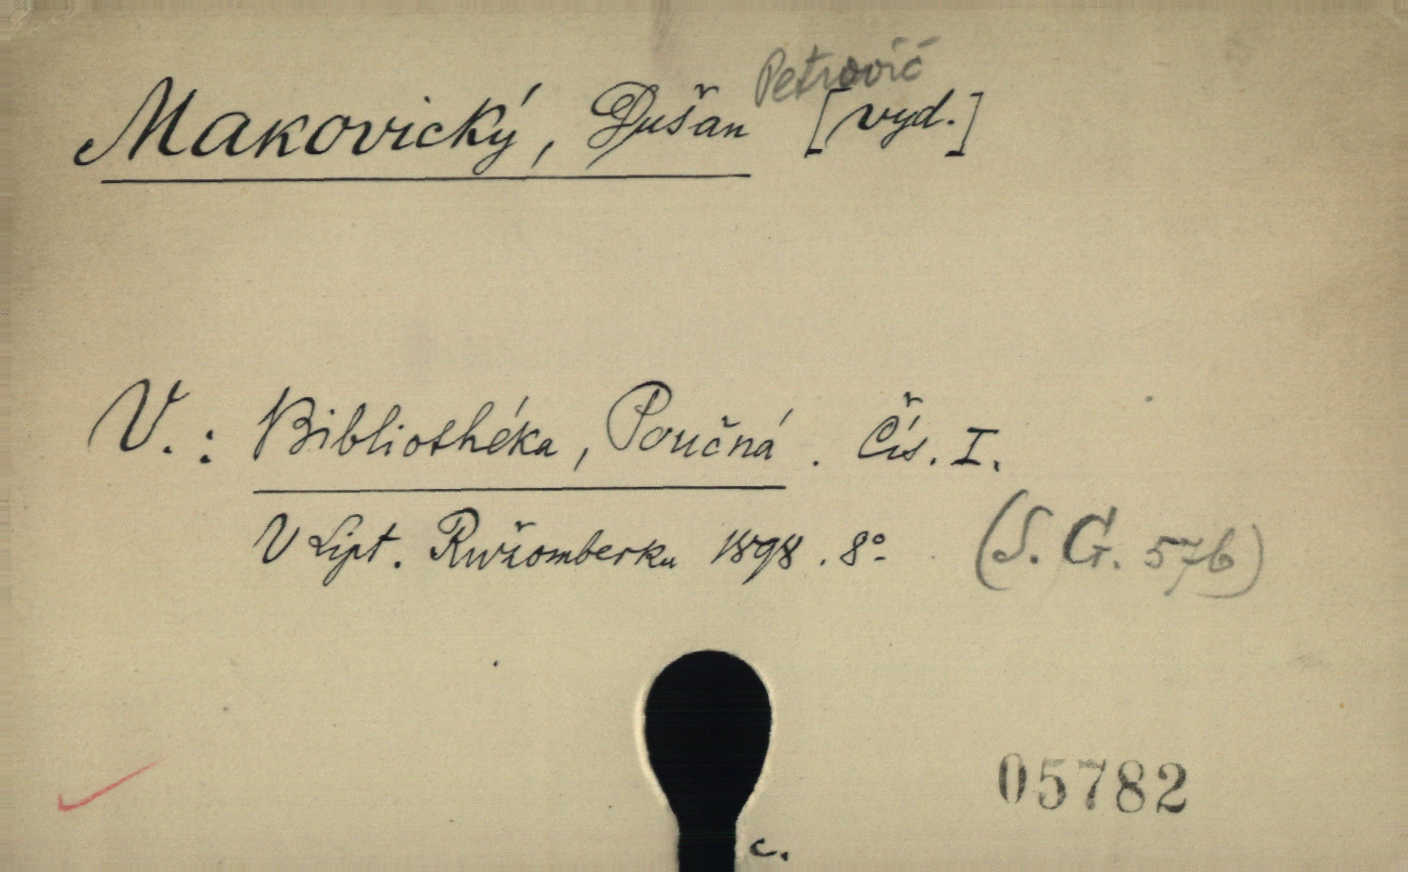 Makovický, Dušan Petrovič [vyd.]
V.: Bibliothéka, Poučná. Čís. I.
V Lipt. Ružomberku 1898. 8° (S. G. 576)
05782
c.